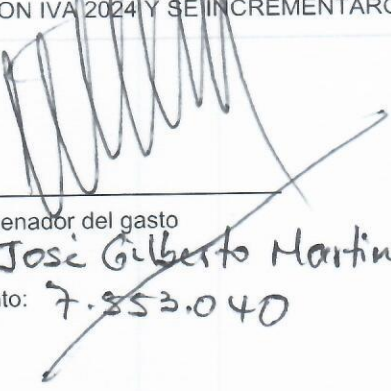 ON IVA 2024 Y SE INCREMENTARO
enador del gasto
José Gilberto Martin
to: 7.853.040